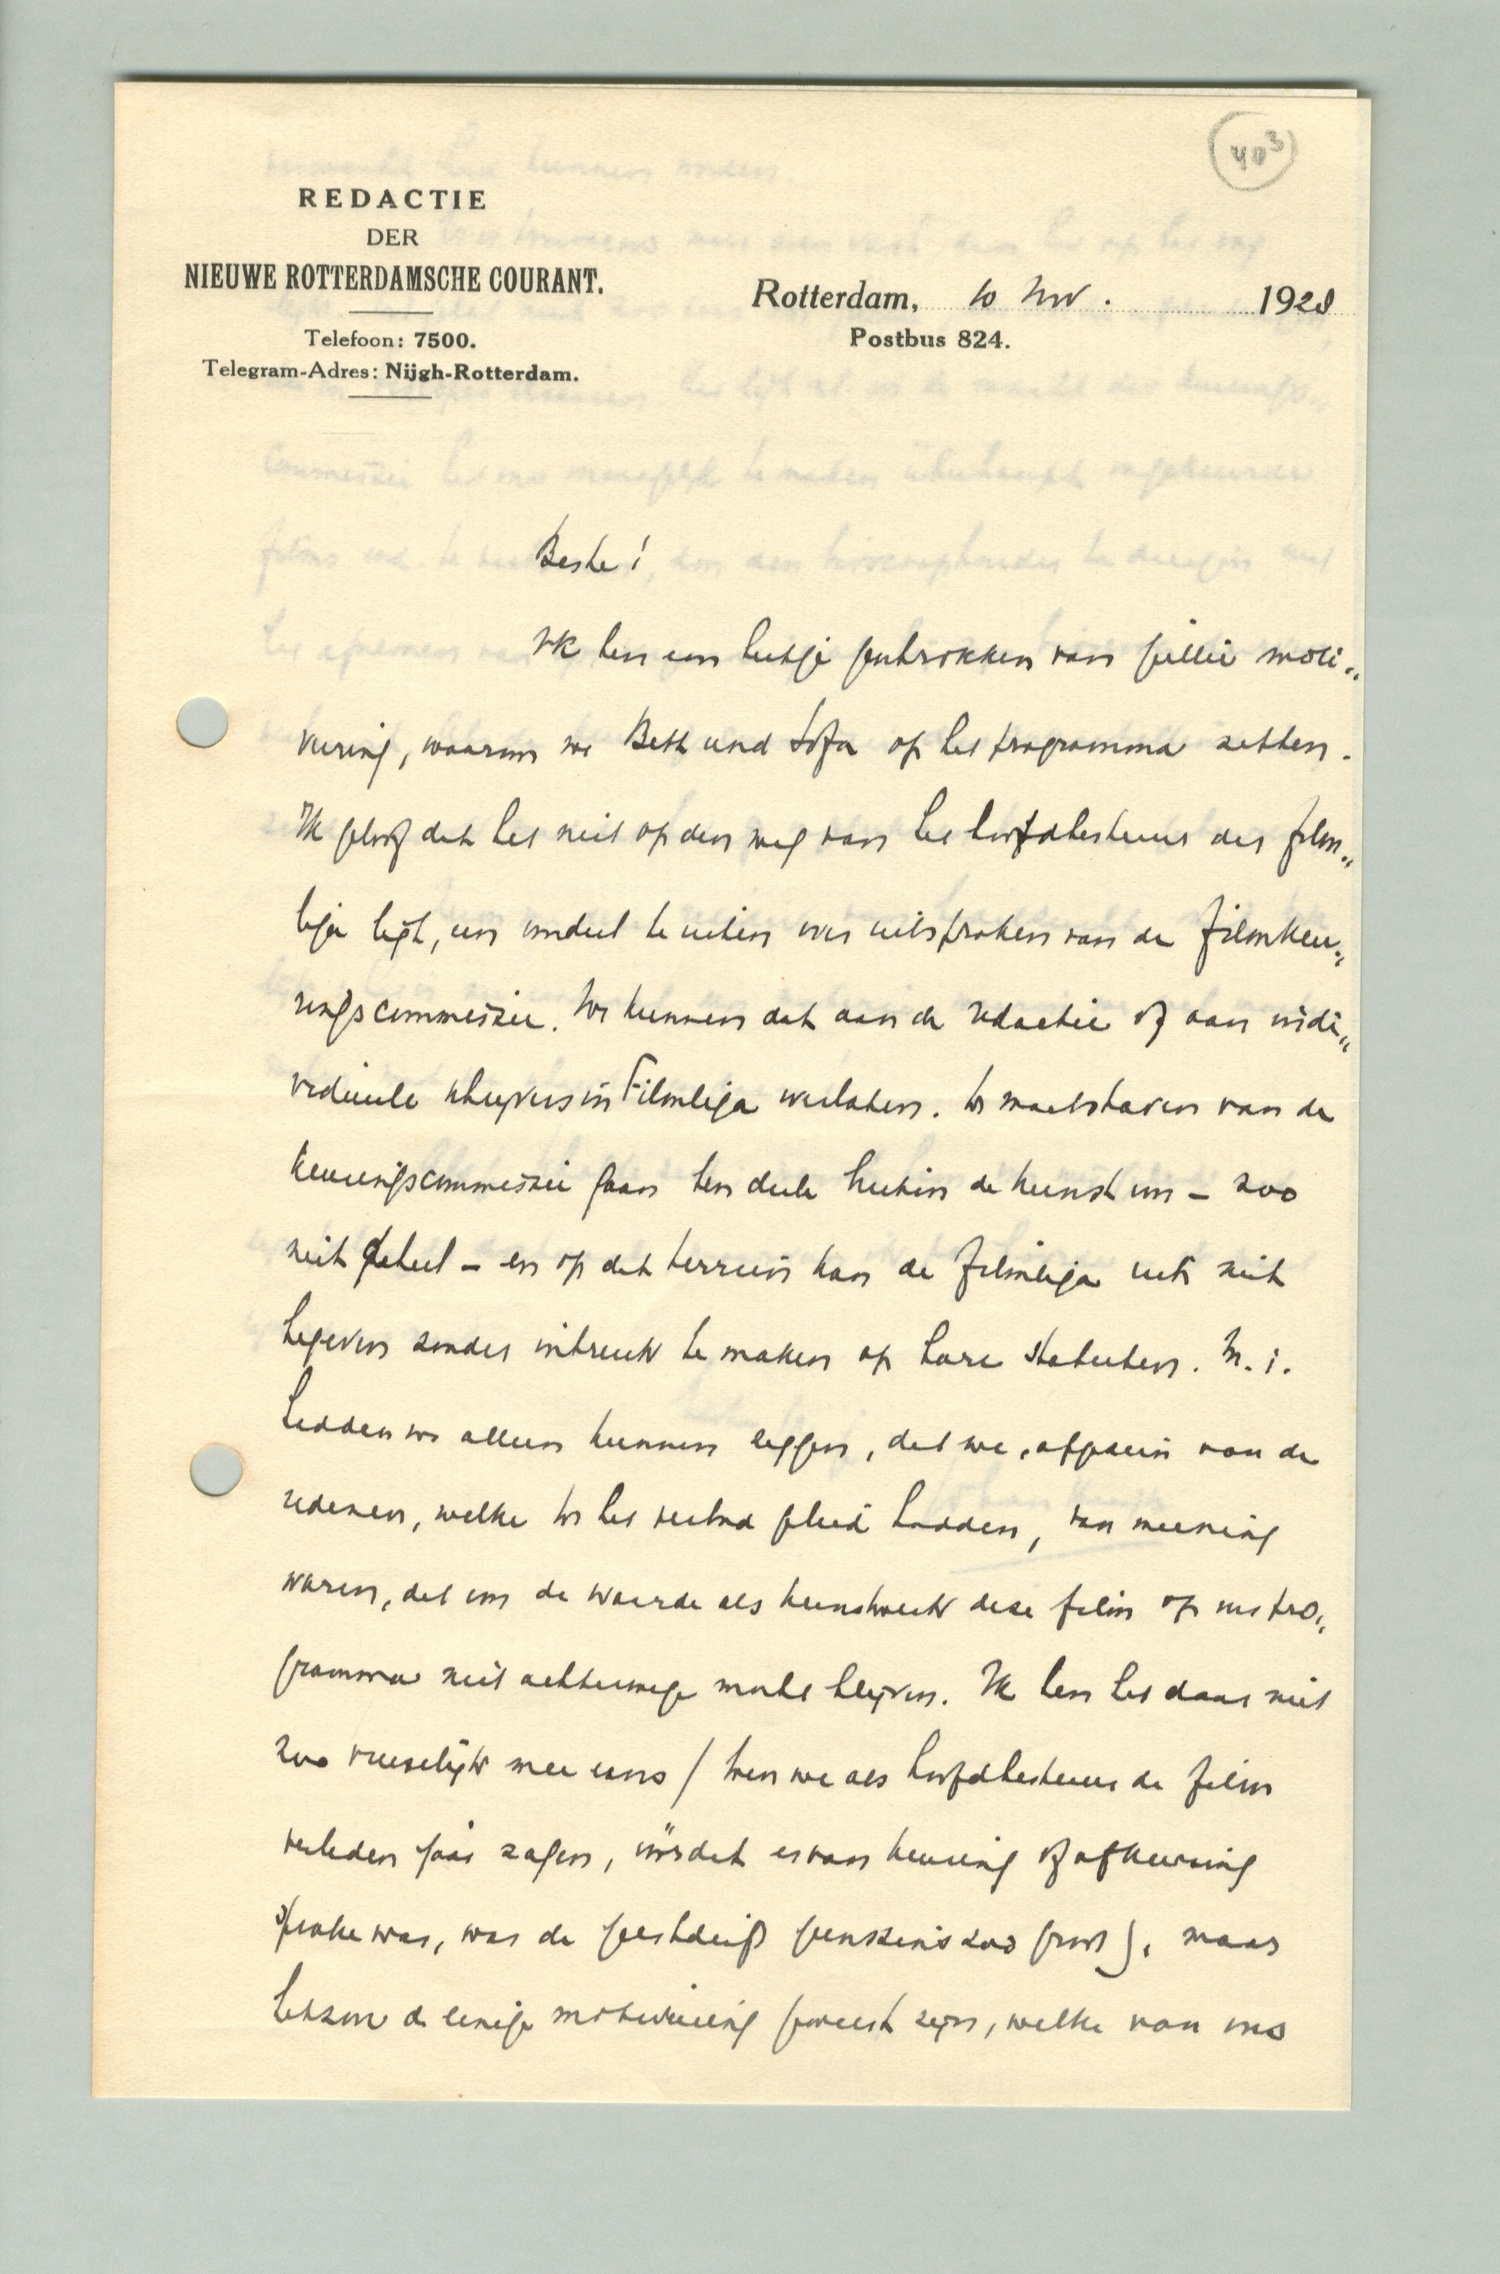 403
REDACTIE
DER
NIEUWE ROTTERDAMSCHE COURANT.
Telefoon: 7500.
Telegram-Adres: Nijgh-Rotterdam.
Rotterdam, 10 Nov. 1928
Postbus 824.
Beste!
Ik ben een beetje geschrokken van jullie moti-
veering, waarom we Bett und Sofa op het programma zetten.
Ik geloof dat het niet op den weg van het hoofdbestuur der film-
liga ligt, een oordeel te uiten over uitspraken van de Filmkeu-
ringscommissie. We kunnen dat aan de redactie of aan indi-
vidueele schrijvers in Filmliga overlaten. De maatstaven van de
keuringscommissie gaan ten deele buiten de kunst om – zoo
niet geheel – en op dat terrein kan de filmliga zich niet
begeven zonder inbreuk te maken op hare statuten. M.i.
hadden we alleen kunnen zeggen, dat we, afgezien van de
redenen, welke tot het verbod geleid hadden, van meening
waren, dat om de waarde als kunstwerk deze film op ons pro-
gramma niet achterwege mocht blijven. Ik ben het daar niet
zoo vreeselijk mee eens (toen we als hoofdbestuur de film
verleden jaar zagen, vóórdat er van keuring of afkeuring
sprake was, was de geestdrift geenszins zoo groot), maar
het zou de eenige motiveering geweest zijn, welke van ons